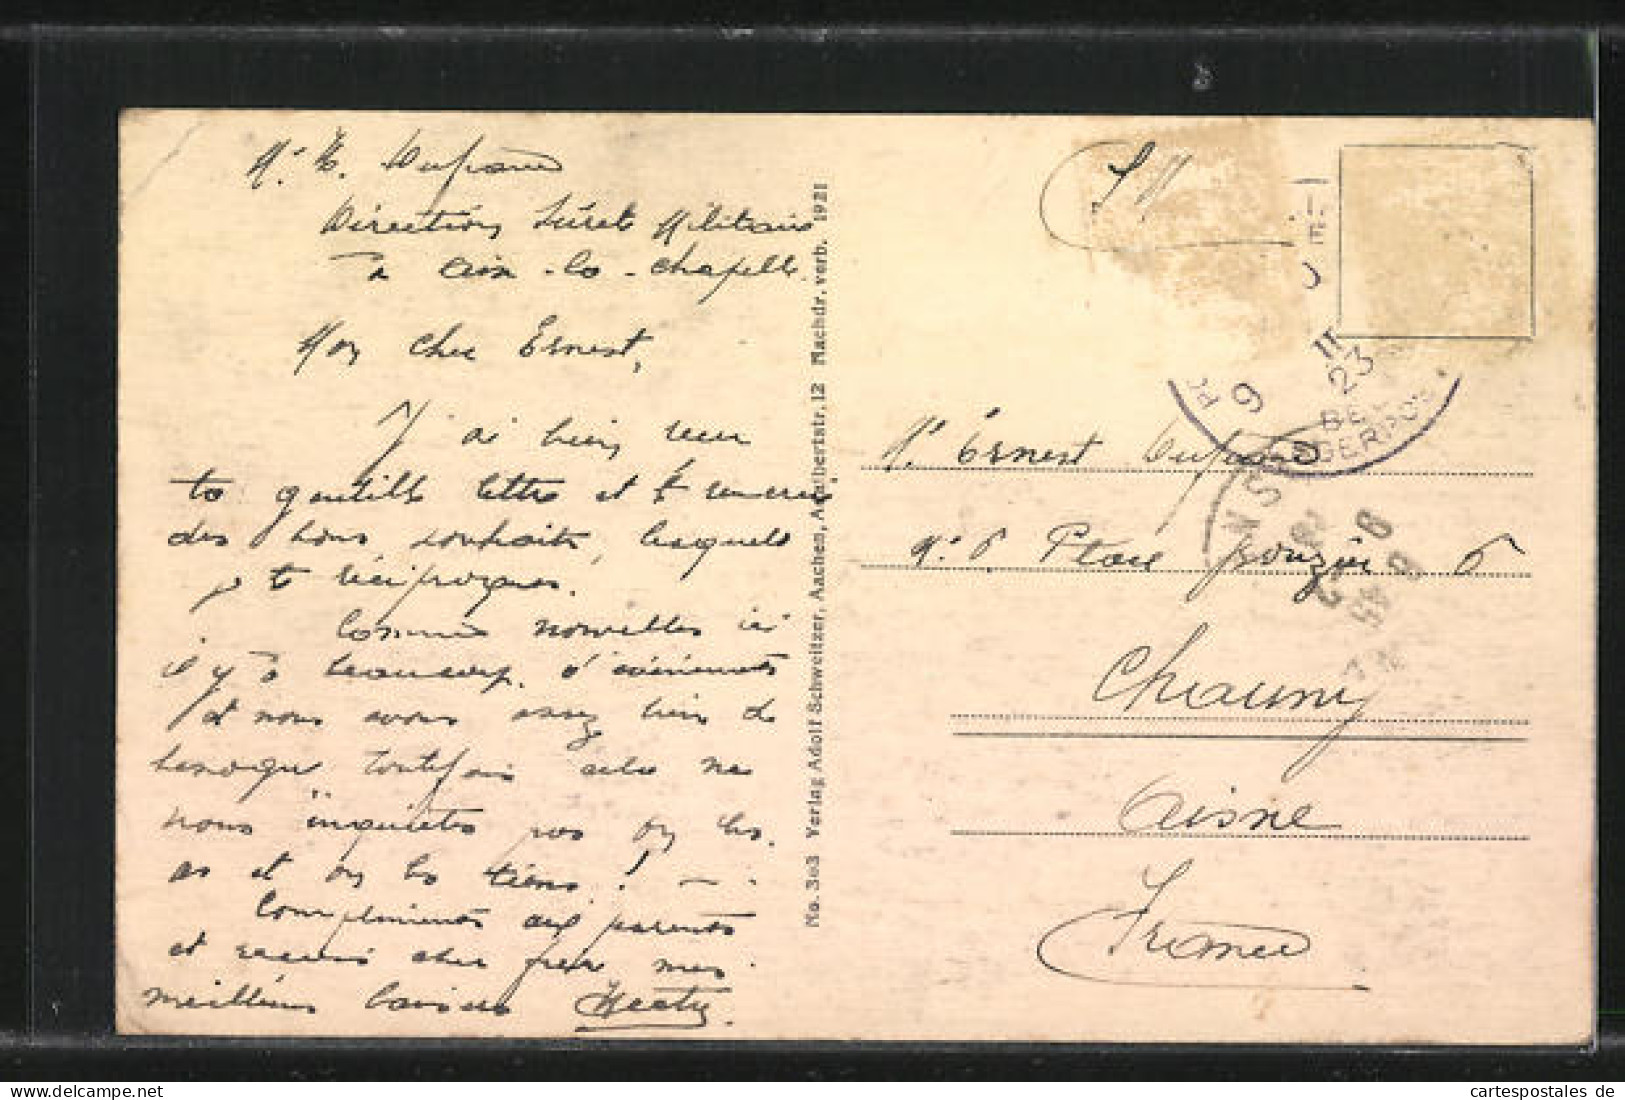 Direction Sûreté Militaire
à Aix-la-Chapelle.
Mon cher Ernest,
J'ai bien reçu
ta gentille lettre et te remercie
des bons souhaits, lesquels
je te réciproques.
Comme nouvelles ici
il y a beaucoup d'événements
et nous avons assez bien de
besogne toutefois cela ne
nous inquiètes pas on les
as et on les tiens ! —
Compliments aux parents
et reçois cher frère mes
meilleurs baisers
No. 363 Verlag Adolf Schweitzer, Aachen, Adalbertstr. 12 Nachdr. verb. 1921
S.M.
9 II 23
Mr Ernest
No 6 Place Bouzier 6
Chauny
Aisne
France
cartespostales de